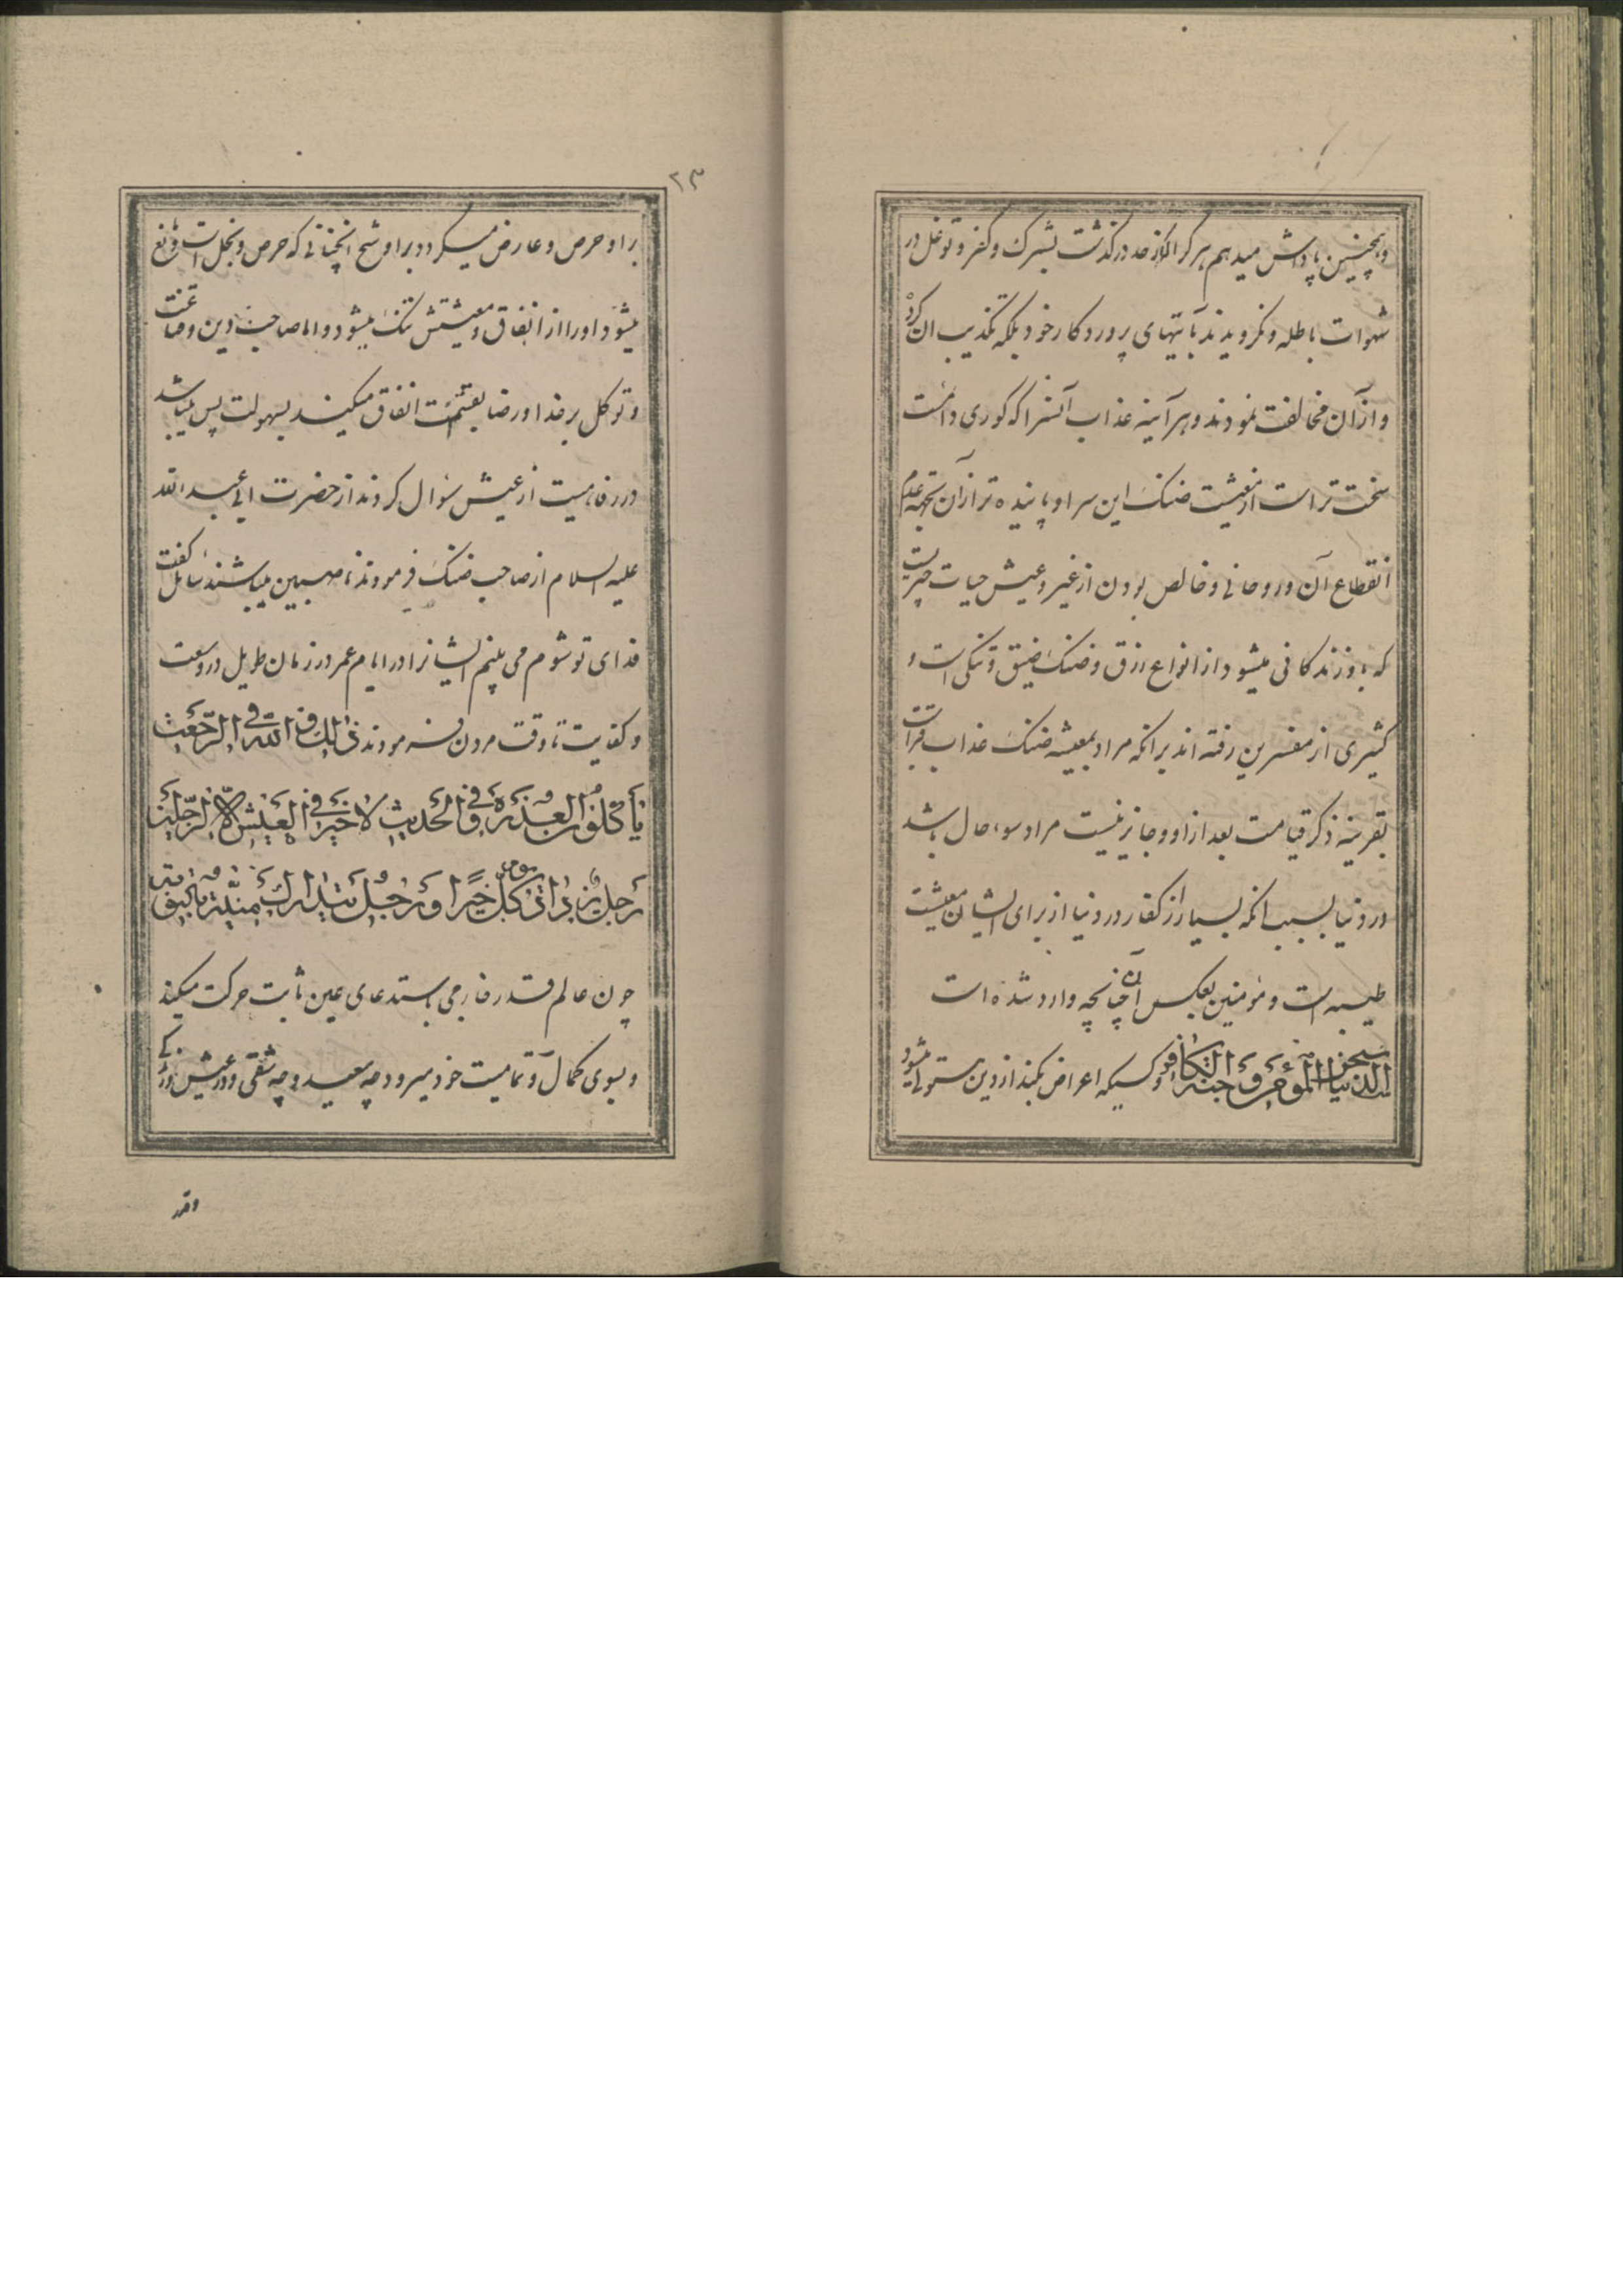 و همچنین پاداش میدهم هر کرا که از حد درگذشت بشرک و کفر و توغل در
شهوات باطله و نگرویدند بآیتهای پروردکار خود بلکه تکذیب ان کرد
و از آن مخالفت نمودند و هر آینه عذاب آنسرا که کوری دانست
سخت تر است از معیشت ضنک این سرا و پاینده تر از آن بجهة عدم
انقطاع آن و روحانی و خالص بودن از غیر و عیش حیات چیزیست
که باو زندکانی میشود از انواع رزق و ضنک ضیق و تنکی است و
کثیری از مفسرین رفته اند برانکه مراد بمعیشه ضنک عذاب قبر است
بقرینه ذکر قیامت بعد از او و جایز نیست مراد سوء حال باشد
در دنیا بسبب انکه بسیار از کفار در دنیا از برای ایشان معیشت
طیبه است و مؤمنین بعکس آن چنانچه وارد شده است
الدنیا سجن المؤمن و جنة الکافر و کسیکه اعراض بکند از دین مستولی میشود
۲۳
بر او حرص و عارض میکردد بر او شح انچنانی که حرص و بخل است و مانع
میشود اورا از انفاق و معیشتش تنک میشود و اما صاحب دین و قناعت
و توکل بر خدا و رضا بقسمت انفاق میکند بسهولت پس میباشد
در رفاهیت از عیش سؤال کردند از حضرت ابی عبدالله
علیه السلام از صاحب ضنک فرمودند ناصبیین میباشند سائل گفت
فدای تو شوم می بینم ایشانرا در ایام عمر در زمان طویل در وسعت
و کفایت تا وقت مردن فرمودند ذٰلِكَ وَاللّٰهِ فِی الرَّجْعَةِ
یَأْكُلُونَ الْعَذِرَةَ وَ فِی الْحَدیثِ لاٰ خَیْرَ فِی الْعَیْشِ اِلّاٰ لِرَجُلَیْنِ
رَجُلٌ یَزْدٰادُ فی كُلِّ یَوْمٍ خَیْرًا وَ رَجُلٌ یَتَدٰارَكُ مَنِیَّتَهُ بِالتَّوْبَةِ
چون عالم قدر خارجی باستدعای عین ثابت حرکت میکند
و بسوی کمال و تمامیت خود میرود چه سعید و چه شقی و در عیش
واقد